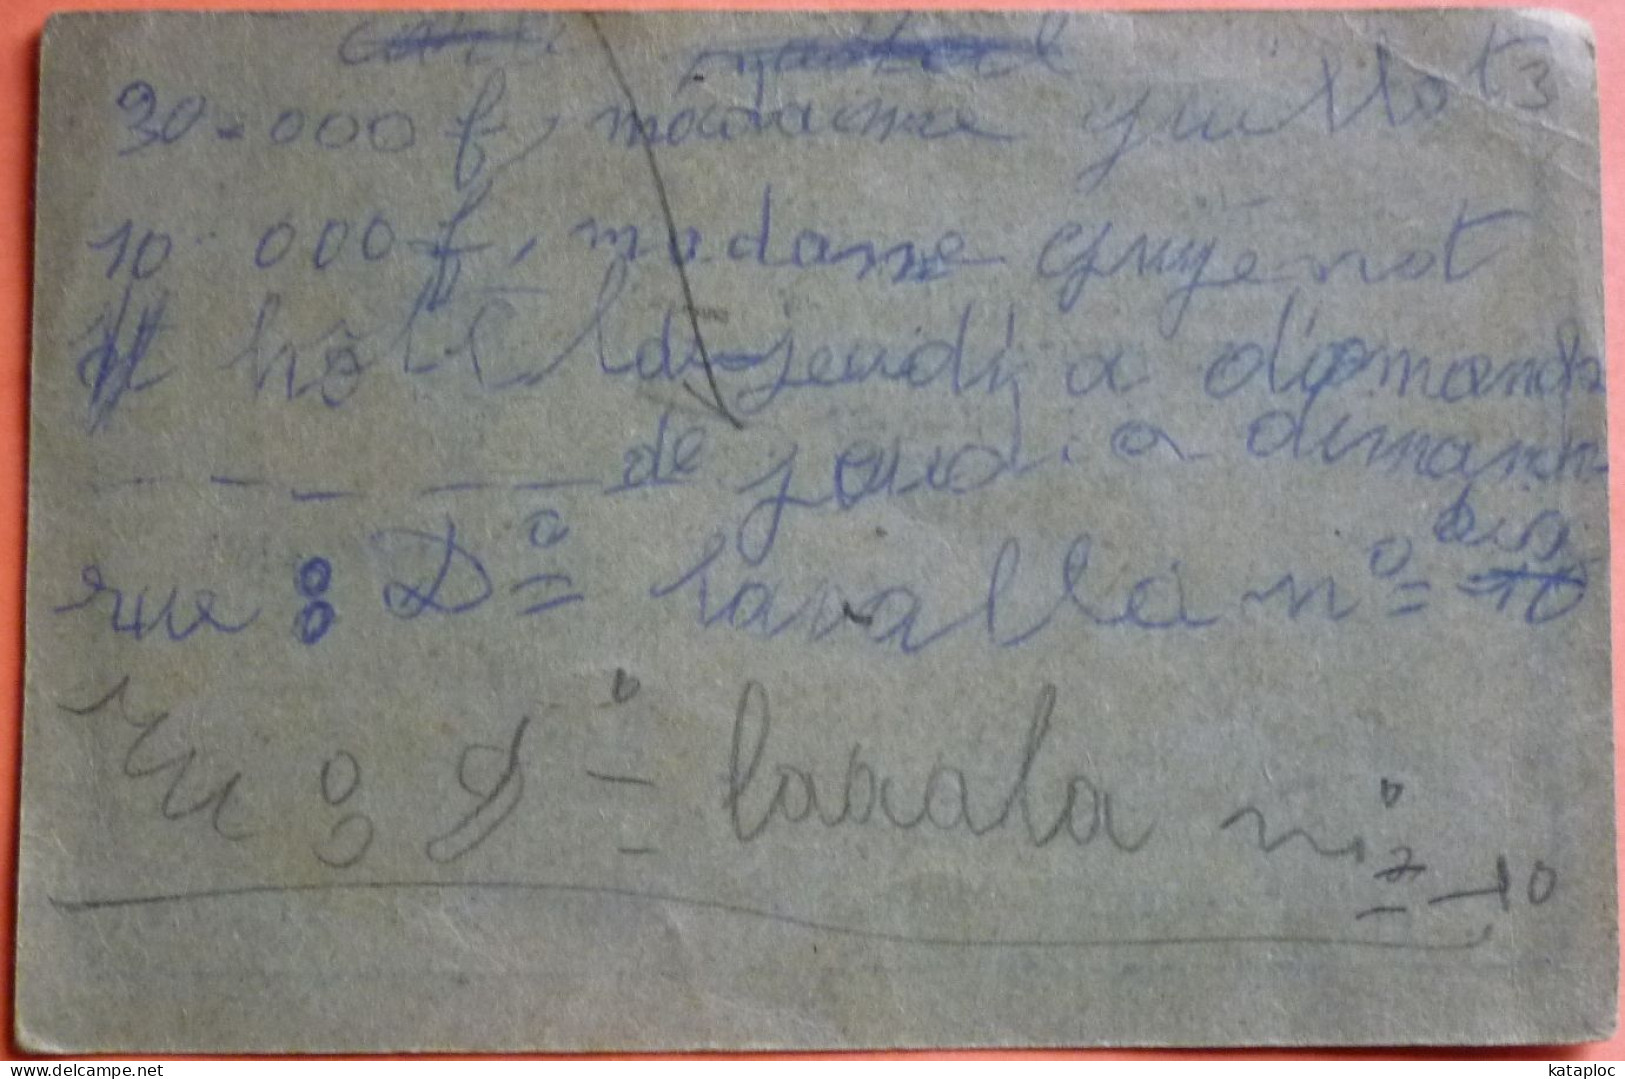 3
30-000 f, madame guillot
10-000 f, madame guyénot
hôtel du jeudi a dimanch
de jeudi a dimanch
bis
rue : D° = lavalla n° = 10
rue : D° = lavala n° = 10
delcampe.net
kataploc